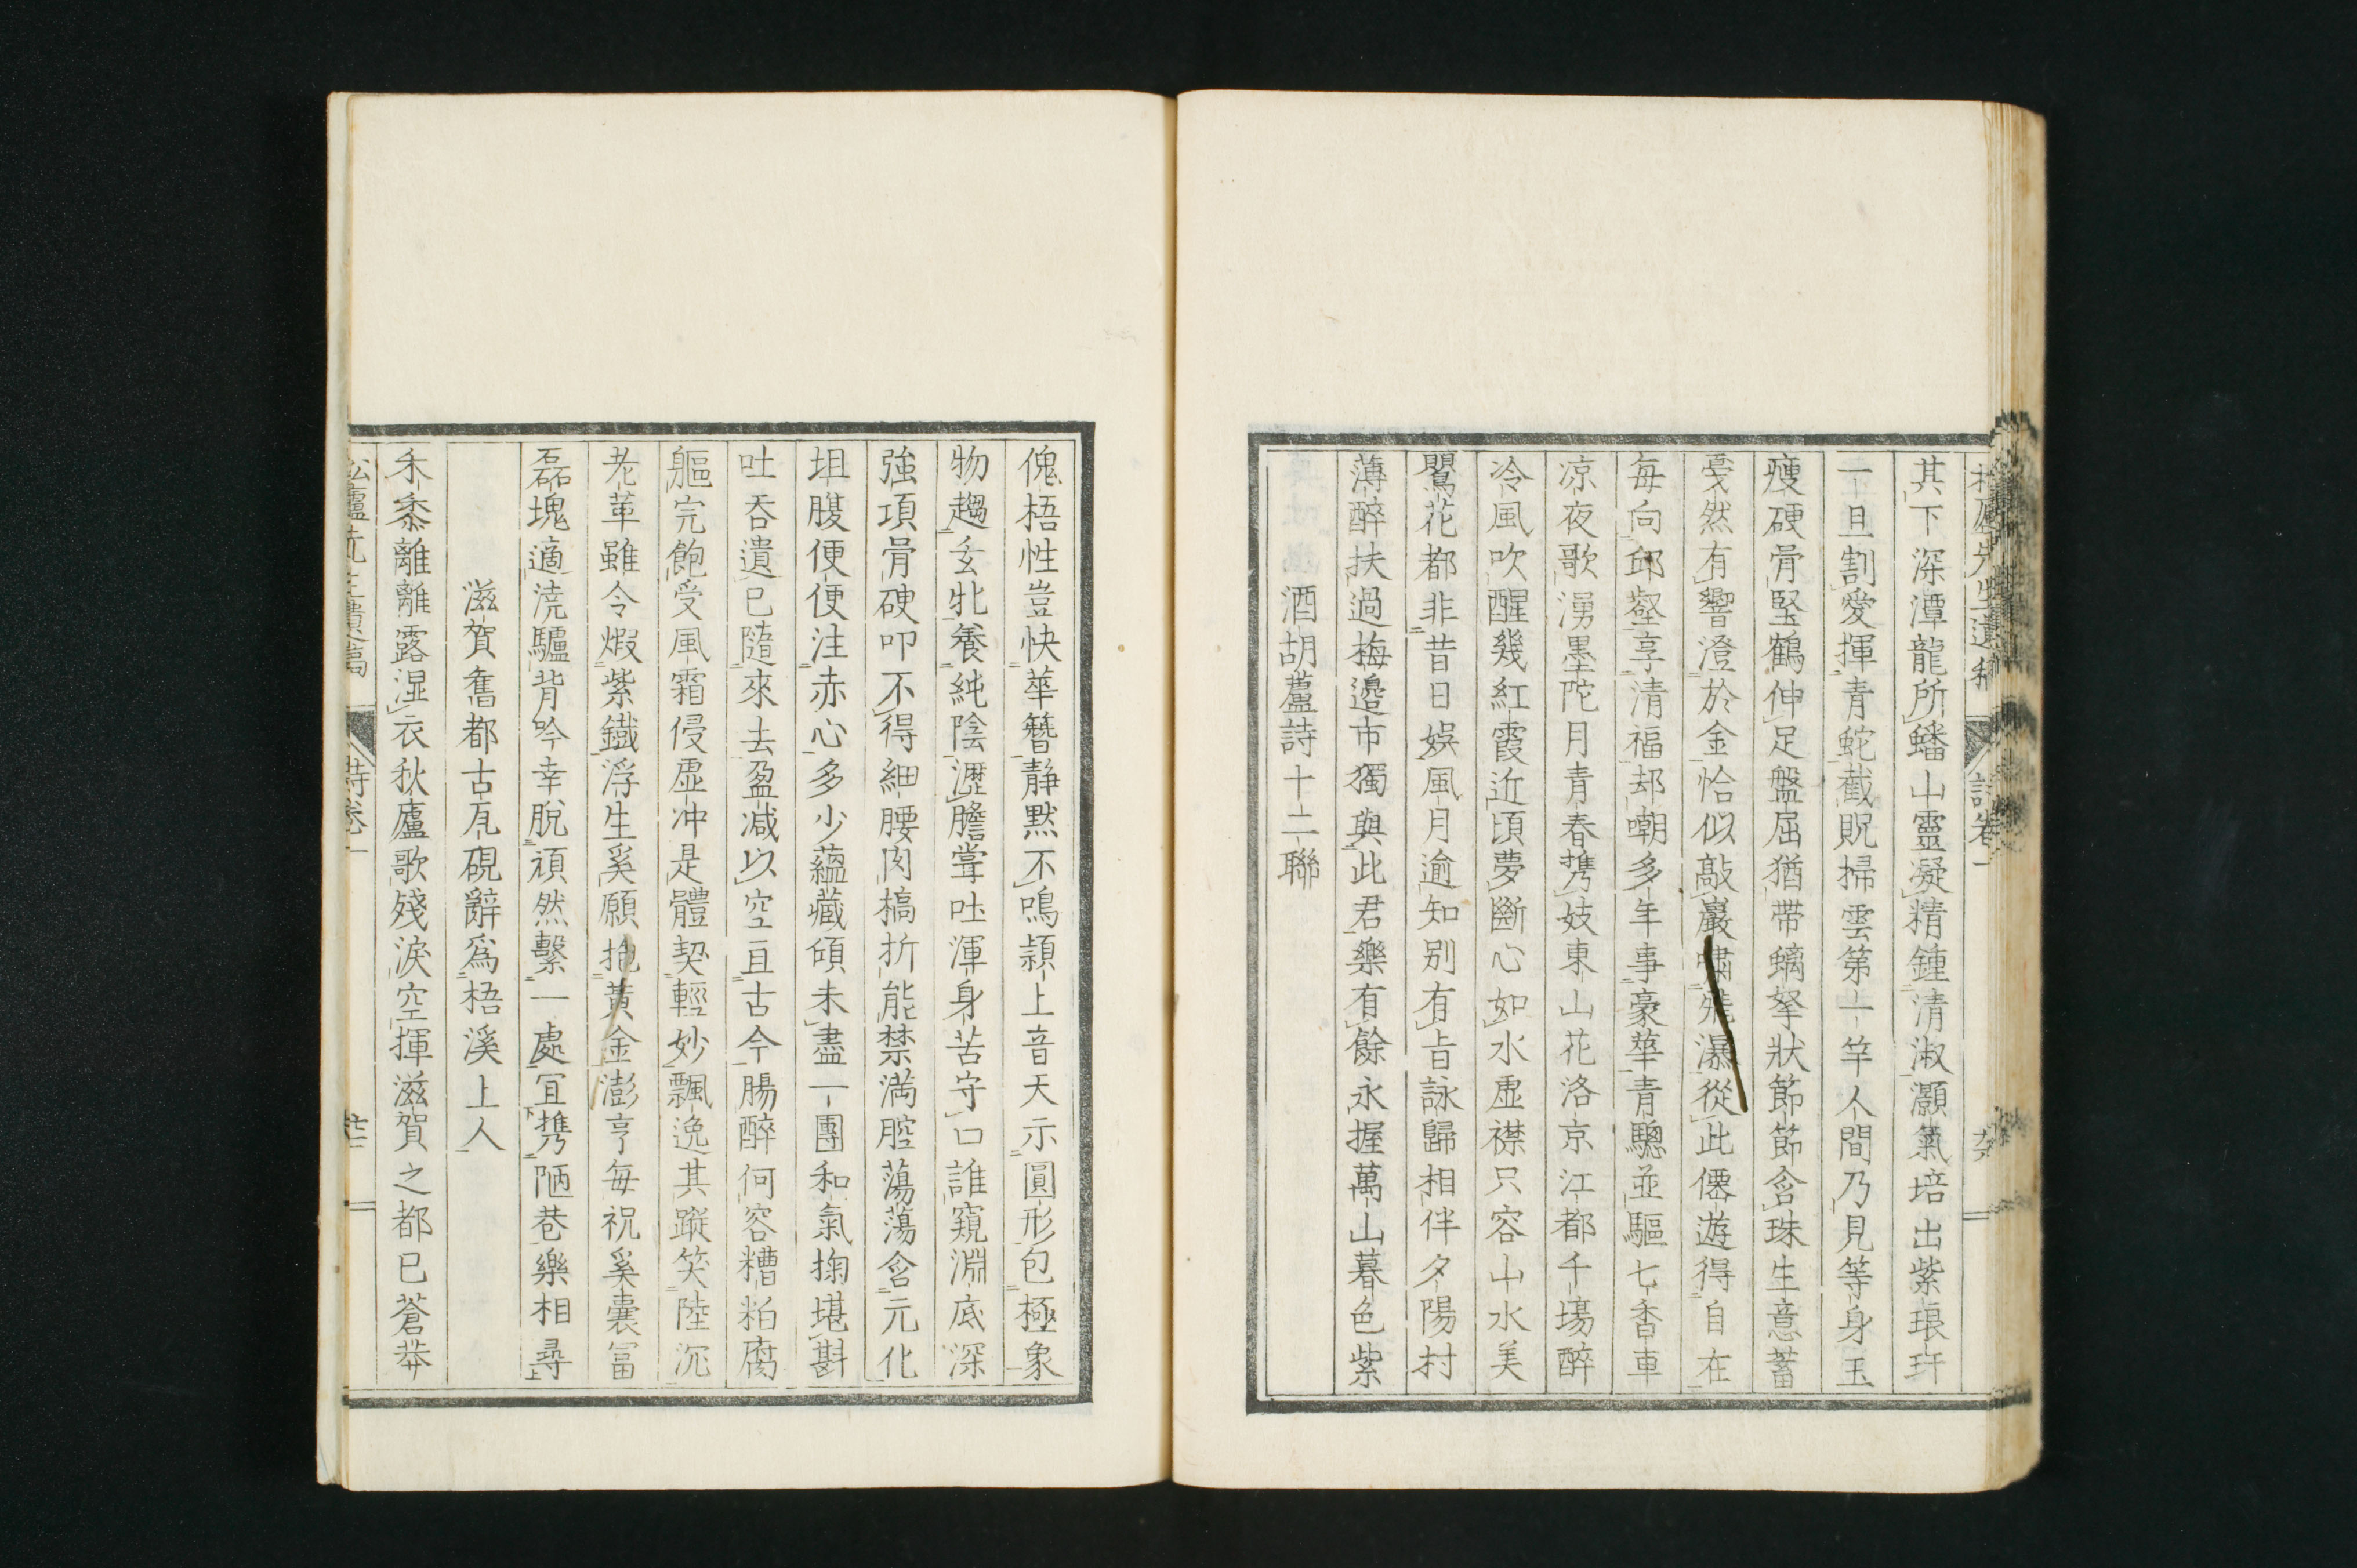 其下深潭龍所蟠山靈凝精鍾清淑灝氣培出紫琅玕
一旦割愛揮青蛇截貺掃雲第一竿人間乃見等身玉
瘦硬骨堅鶴伸足盤屈猶帶螭拏狀節節含珠生意蓄
戞然有響澄於金恰似敲巖嘯飛瀑從此僊遊得自在
每向邱壑享清福却嘲多年事豪華青驄並驅七香車
凉夜歌湧墨陀月青春携妓東山花洛京江都千塲醉
冷風吹醒幾紅霞近頃夢斷心如水虛襟只容山水美
鸎花都非昔日娛風月逾知别有旨詠歸相伴夕陽村
薄醉扶過梅邉市獨與此君樂有餘永握萬山暮色紫
酒胡蘆詩十二聯
傀梧性豈快華簪靜默不鳴潁上音天示圓形包極象
物趨玄牝養純陰瀝膽嘗吐渾身苦守口誰窺淵底深
強項骨硬叩不得細腰肉槁折能禁滿腔蕩蕩含元化
坦腹便便注赤心多少蘊藏傾未盡一團和氣掬堪斟
吐吞遺已隨來去盈减以空亘古今腸醉何容糟粕腐
軀完飽受風霜侵虛冲是體契輕妙飄逸其蹤笑陸沉
老革雖令煆紫鐵浮生奚願抱黃金澎亨每祝奚囊冨
磊塊適澆驢背吟幸脫頑然繫一處冝携陋巷樂相尋
滋賀舊都古瓦硯辭爲梧溪上人
禾黍離離露湿衣秋廬歌殘淚空揮滋賀之都已蒼莽
詩卷一